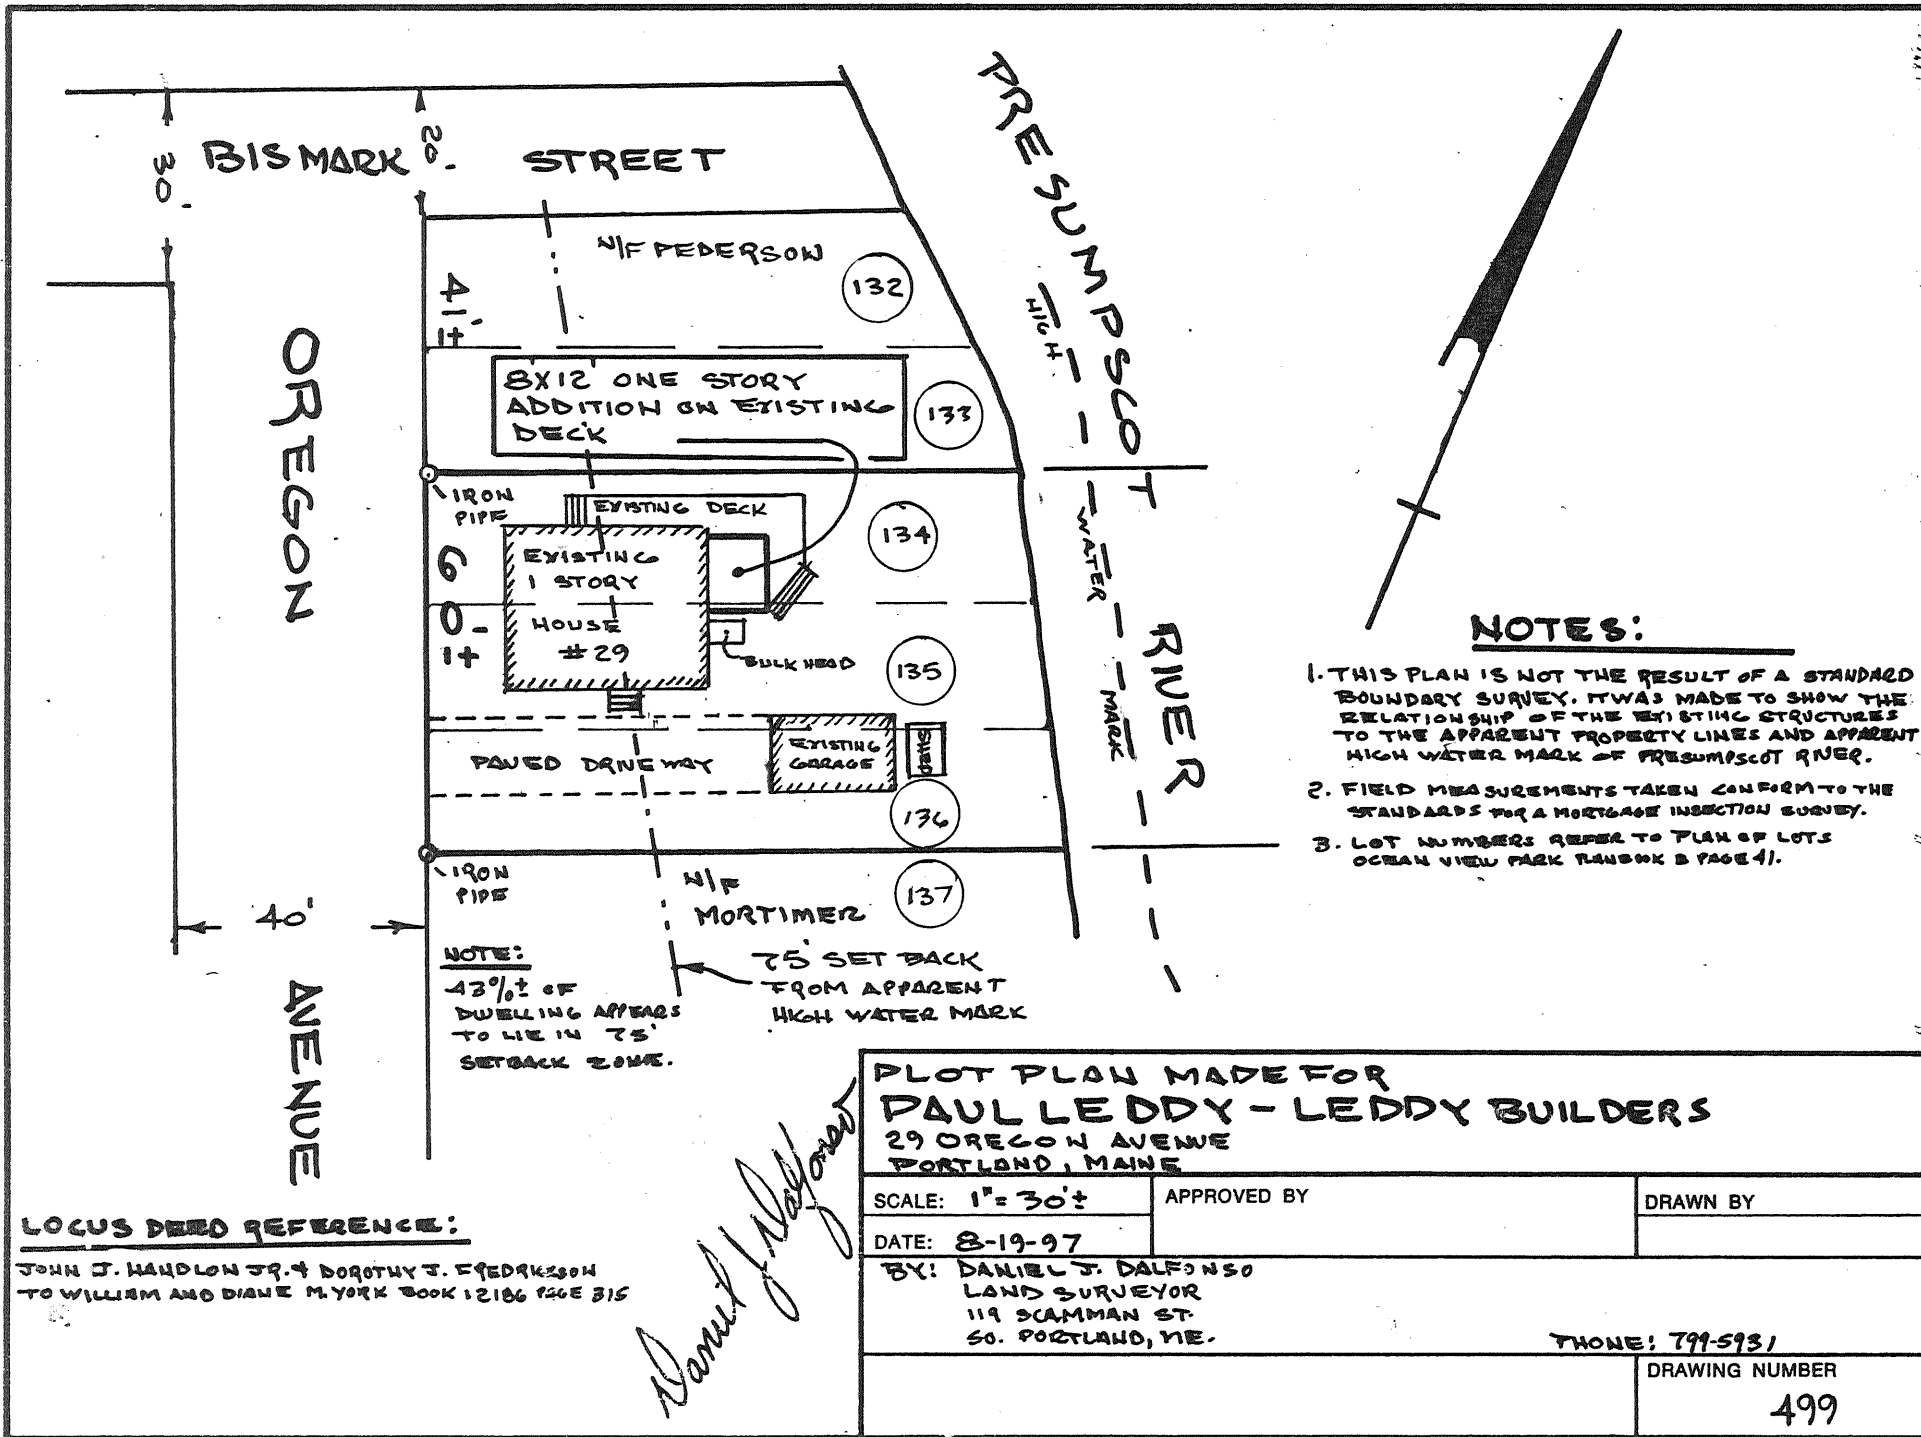 BISMARK STREET
30'
20'
PRESUMPSCOT RIVER
N/F PEDERSON
132
41'±
8'X12' ONE STORY
ADDITION ON EXISTING
DECK
133
HIGH WATER MARK
OREGON AVENUE
IRON
PIPE
EXISTING DECK
134
60'±
EXISTING
1 STORY
HOUSE
#29
BULKHEAD
135
PAVED DRIVEWAY
EXISTING
GARAGE
SHED
136
IRON
PIPE
N/F
MORTIMER
137
40'
NOTE:
43%± OF
DWELLING APPEARS
TO LIE IN 75'
SETBACK ZONE.
75' SET BACK
FROM APPARENT
HIGH WATER MARK
NOTES:
1. THIS PLAN IS NOT THE RESULT OF A STANDARD
BOUNDARY SURVEY. IT WAS MADE TO SHOW THE
RELATIONSHIP OF THE EXISTING STRUCTURES
TO THE APPARENT PROPERTY LINES AND APPARENT
HIGH WATER MARK OF PRESUMPSCOT RIVER.
2. FIELD MEASUREMENTS TAKEN CONFORM TO THE
STANDARDS FOR A MORTGAGE INSECTION SURVEY.
3. LOT NUMBERS REFER TO PLAN OF LOTS
OCEAN VIEW PARK PLANBOOK 8 PAGE 41.
LOCUS DEED REFERENCE:
JOHN J. HANDLON JR. & DOROTHY J. FREDRIKSSON
TO WILLIAM AND DIANE M. YORK BOOK 12186 PAGE 315
Daniel J. Dalfonso
PLOT PLAN MADE FOR
PAUL LEDDY - LEDDY BUILDERS
29 OREGON AVENUE
PORTLAND, MAINE
SCALE: 1"=30'±
APPROVED BY
DRAWN BY
DATE: 8-19-97
BY: DANIEL J. DALFONSO
LAND SURVEYOR
119 SCAMMAN ST.
SO. PORTLAND, ME.
PHONE: 799-5931
DRAWING NUMBER
499